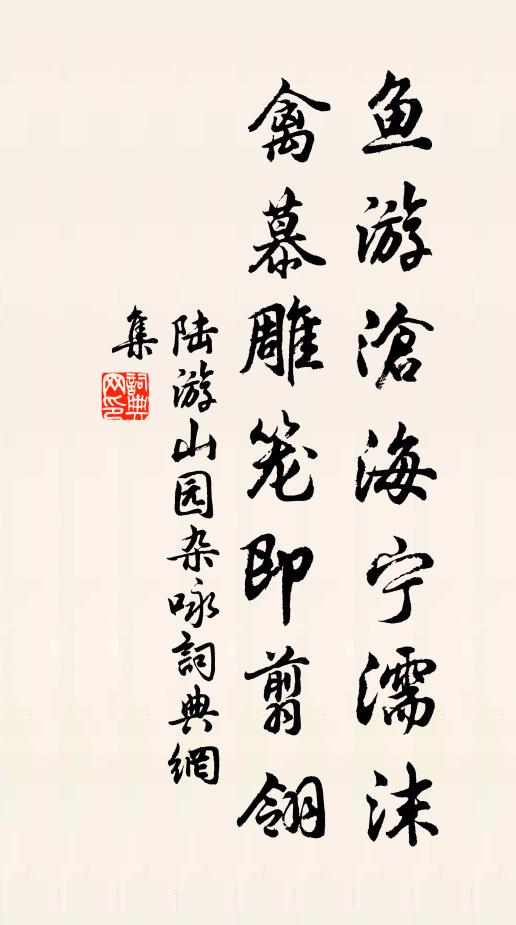 鱼游滄海宁濡沫
禽慕雕笼即剪翎
陆游山园杂咏詞典網
集
詞典
网印